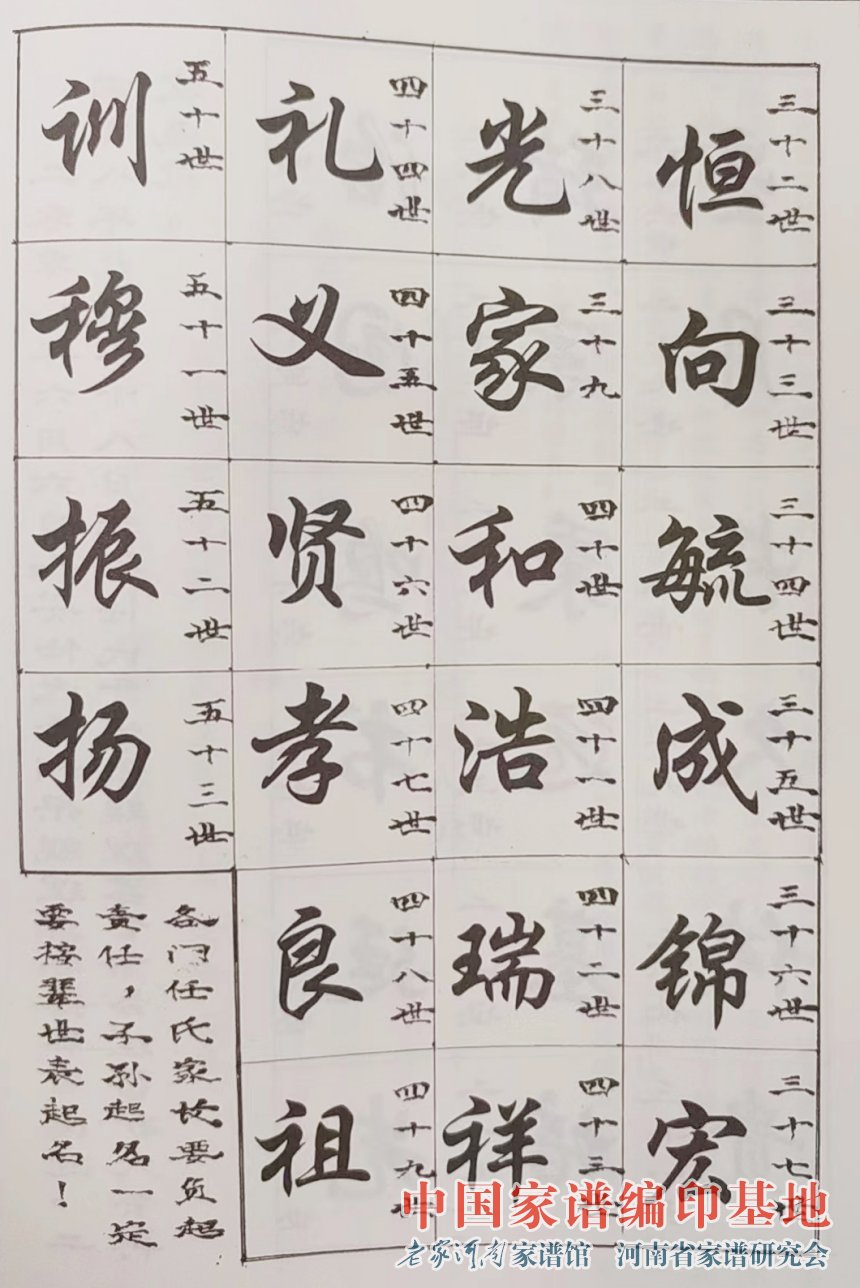 三十二世
恒
三十三世
向
三十四世
毓
三十五世
成
三十六世
锦
三十七世
宏
三十八世
光
三十九
家
四十世
和
四十一世
浩
四十二世
瑞
四十三世
祥
四十四世
礼
四十五世
义
四十六世
贤
四十七世
孝
四十八世
良
四十九世
祖
五十世
训
五十一世
穆
五十二世
振
五十三世
扬
各门任氏家坟要负起
责任，子孙起名一定
要按辈世表起名！
中国家谱编印基地
老家河南家谱馆 河南省家谱研究会